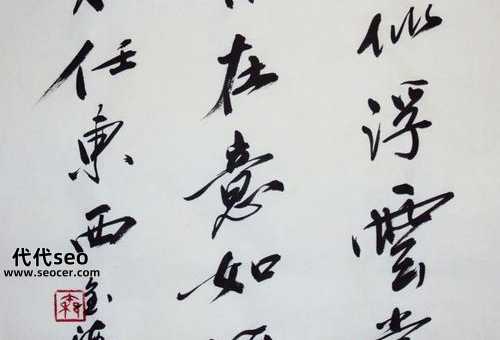 似浮雲常
在意如
任東西
代代seo
www.seocer.com